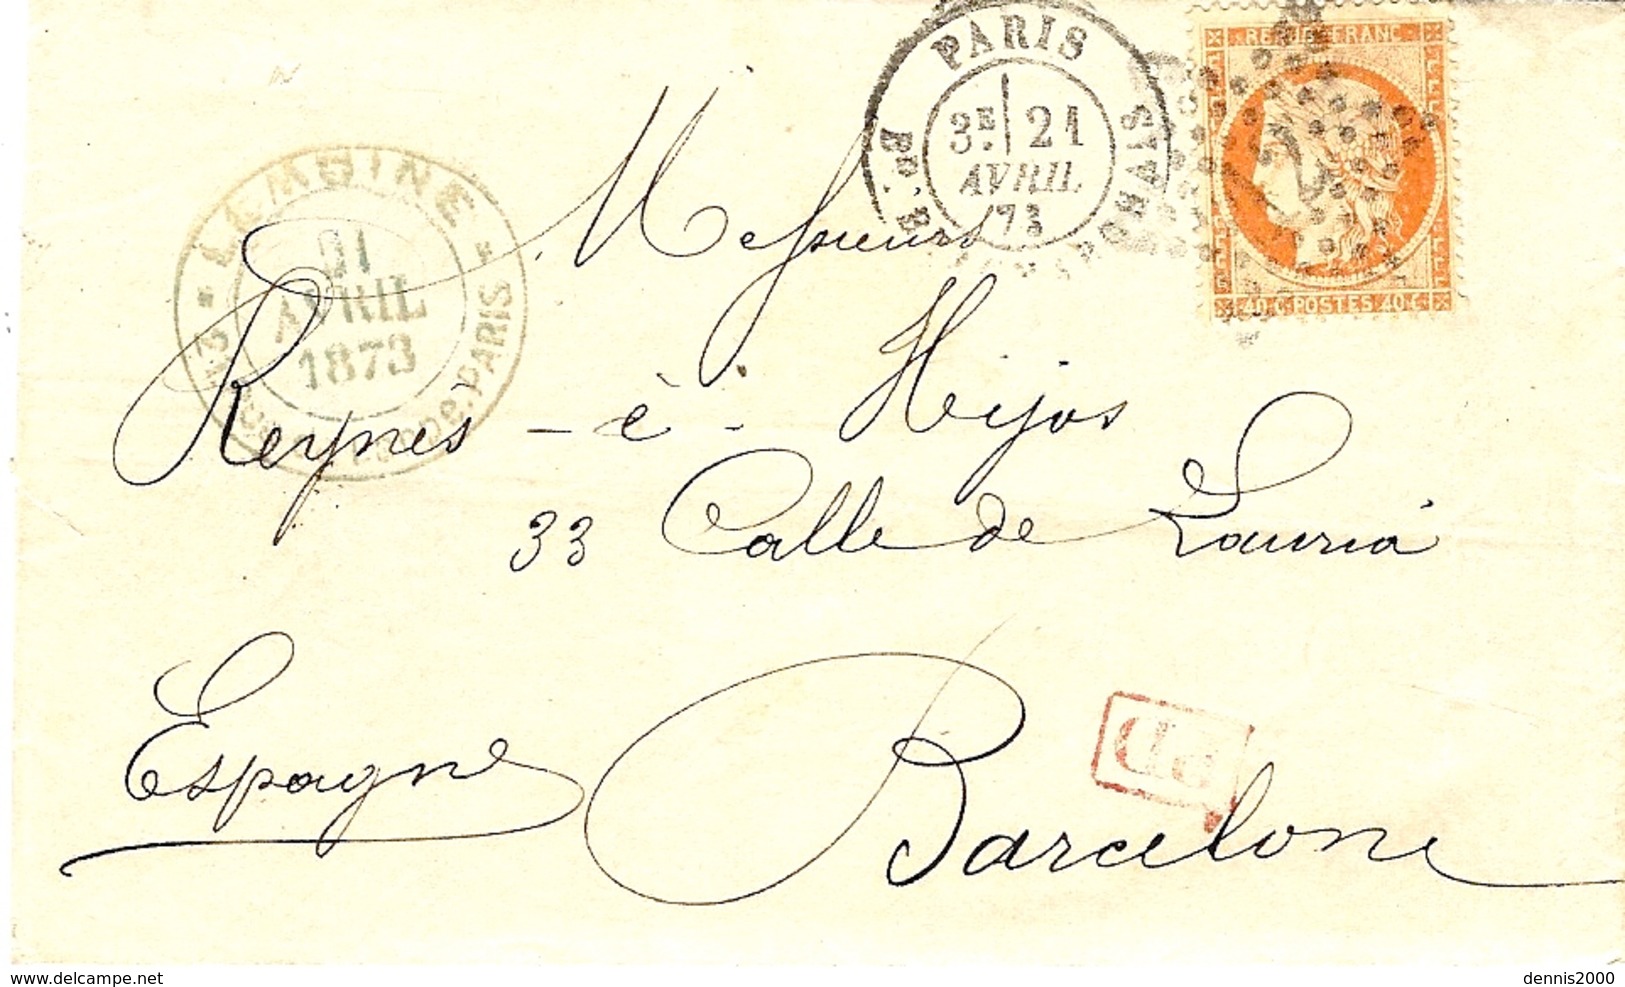 PARIS
3E 21
AVRIL
73
REPUB. FRANC.
40 C. POSTES 40 C.
LEMOINE
01
AVRIL
1873
PARIS
Messieurs
Reynés - è - Hijos
33 Calle de Lauria
Espagne
Barcelone
PD
delcampe.net
dennis2000